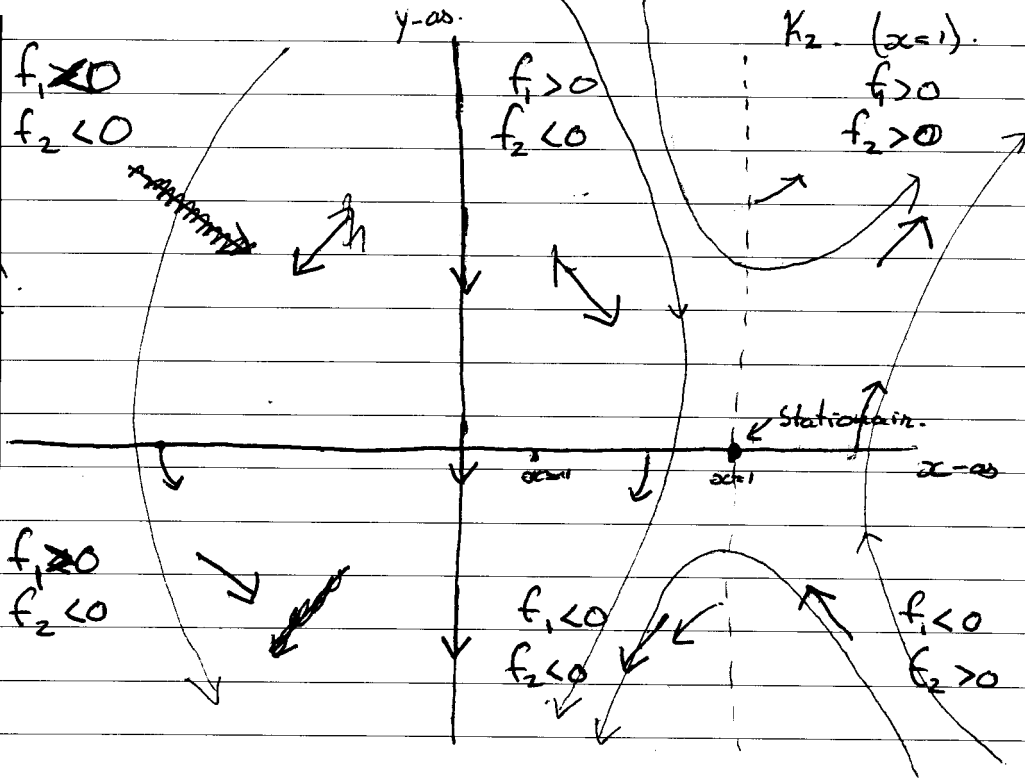 y-as.
K₂. (x=1).
f₁<0
f₂<0
f₁>0
f₂<0
f₁>0
f₂>0
Stationair.
x=1
x-as
f₁>0
f₂<0
f₁<0
f₂<0
f₁<0
f₂>0